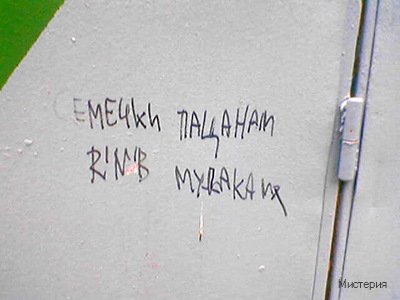 СЕМЕЧКИ ПАЦАНАМ
R'N'B МУДАКАМ
Мистерия